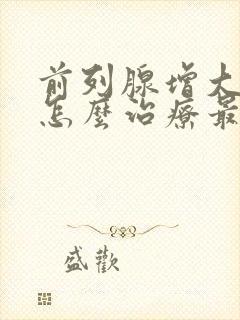 前列腺增大
怎麼治療最
盛歡